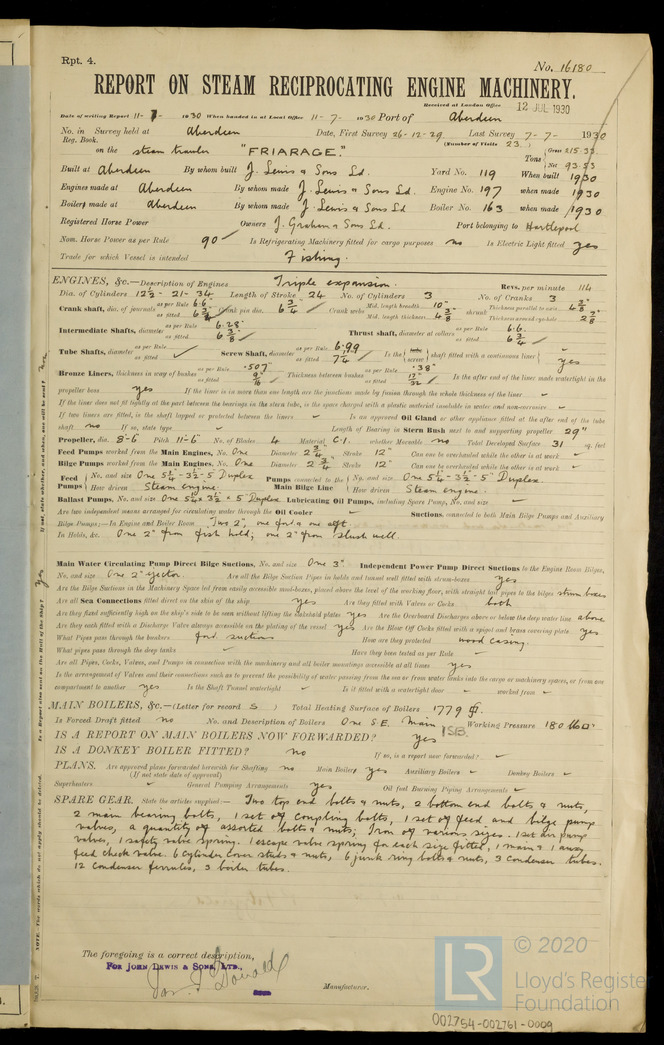 Rpt. 4.
No. 16180
REPORT ON STEAM RECIPROCATING ENGINE MACHINERY.
Received at London Office 12 JUL 1930
Date of writing Report 11-7-1930 When handed in at Local Office 11-7-1930 Port of Aberdeen
No. in Survey held at Aberdeen Date, First Survey 26-12-29. Last Survey 7-7-1930
Reg. Book. (Number of Visits 23.)
on the steam trawler "FRIARAGE." Tons Gross 215.33. Net 93.53
Built at Aberdeen By whom built J. Lewis & Sons Ld. Yard No. 119 When built 1930
Engines made at Aberdeen By whom made J. Lewis & Sons Ld. Engine No. 197 when made 1930
Boilers made at Aberdeen By whom made J. Lewis & Sons Ld. Boiler No. 163 when made 1930
Registered Horse Power Owners J. Graham & Sons Ld. Port belonging to Hartlepool
Nom. Horse Power as per Rule 90 Is Refrigerating Machinery fitted for cargo purposes no Is Electric Light fitted yes
Trade for which Vessel is intended Fishing.
ENGINES, &c.—Description of Engines Triple expansion. Revs. per minute 114
Dia. of Cylinders 12½ - 21 - 34 Length of Stroke 24 No. of Cylinders 3 No. of Cranks 3
Crank shaft, dia. of journals as per Rule 6.6 as fitted 6¾ Crank pin dia. 6¾ Crank webs Mid. length breadth 10" Mid. length thickness 4⅜ shrunk Thickness parallel to axis 4⅜ Thickness around eye-hole
Intermediate Shafts, diameter as per Rule 6.28 as fitted 6⅜ Thrust shaft, diameter at collars as per Rule 6.6. as fitted 6¾
Tube Shafts, diameter as per Rule as fitted Screw Shaft, diameter as per Rule 6.99 as fitted Is the screw shaft fitted with a continuous liner yes
Bronze Liners, thickness in way of bushes as per Rule .507 as fitted 9/16 Thickness between bushes as per Rule .38" as fitted Is the after end of the liner made watertight in the
propeller boss yes If the liner is in more than one length are the joints made by fusion through the whole thickness of the liner
If the liner does not fit tightly at the part between the bearings in the stern tube, is the space charged with a plastic material insoluble in water and non-corrosive
If two liners are fitted, is the shaft lapped or protected between the liners Is an approved Oil Gland or other appliance fitted at the after end of the tube
shaft no If so, state type Length of Bearing in Stern Bush next to and supporting propeller 29"
Propeller, dia. 8-6 Pitch 11-6" No. of Blades 4 Material C.I. whether Moveable no Total Developed Surface 31 sq. feet
Feed Pumps worked from the Main Engines, No. One Diameter 2¾ Stroke 12" Can one be overhauled while the other is at work
Bilge Pumps worked from the Main Engines, No. One Diameter 2¾ Stroke 12" Can one be overhauled while the other is at work
Feed Pumps No. and size One 5¼ - 3½ - 5 Duplex Pumps connected to the Main Bilge Line No. and size One 5¼ - 3½ - 5" Duplex.
How driven Steam engine. How driven Steam engine.
Ballast Pumps, No. and size One 5¼ x 3½ x 5 Duplex. Lubricating Oil Pumps, including Spare Pump, No. and size
Are two independent means arranged for circulating water through the Oil Cooler Suctions, connected to both Main Bilge Pumps and Auxiliary
Bilge Pumps:—In Engine and Boiler Room Two 2", one for'd & one aft
In Holds, &c. One 2" from fish hold; one 2" from slush well.
Main Water Circulating Pump Direct Bilge Suctions, No. and size One 3" Independent Power Pump Direct Suctions to the Engine Room Bilges,
No. and size One 2" ejector. Are all the Bilge Suction Pipes in holds and tunnel well fitted with strum-boxes yes
Are the Bilge Suctions in the Machinery Space led from easily accessible mud-boxes, placed above the level of the working floor, with straight tail pipes to the bilges strum boxes
Are all Sea Connections fitted direct on the skin of the ship yes Are they fitted with Valves or Cocks both
Are they fixed sufficiently high on the ship's side to be seen without lifting the stokehold plates yes Are the Overboard Discharges above or below the deep water line above
Are they each fitted with a Discharge Valve always accessible on the plating of the vessel yes Are the Blow Off Cocks fitted with a spigot and brass covering plate yes
What Pipes pass through the bunkers for'd suctions How are they protected wood casing.
What pipes pass through the deep tanks Have they been tested as per Rule
Are all Pipes, Cocks, Valves, and Pumps in connection with the machinery and all boiler mountings accessible at all times yes
Is the arrangement of Valves and their connections such as to prevent the possibility of water passing from the sea or from water tanks into the cargo or machinery spaces, or from one
compartment to another yes Is the Shaft Tunnel watertight Is it fitted with a watertight door worked from
MAIN BOILERS, &c.—(Letter for record S) Total Heating Surface of Boilers 1779
Is Forced Draft fitted no No. and Description of Boilers One S.E. Main 1SB. Working Pressure 180 lb
IS A REPORT ON MAIN BOILERS NOW FORWARDED? yes
IS A DONKEY BOILER FITTED? no If so, is a report now forwarded?
PLANS. Are approved plans forwarded herewith for Shafting no Main Boilers yes Auxiliary Boilers Donkey Boilers
(If not state date of approval)
Superheaters General Pumping Arrangements yes Oil fuel Burning Piping Arrangements
SPARE GEAR. State the articles supplied:— Two top end bolts & nuts, 2 bottom end bolts & nuts,
2 main bearing bolts, 1 set of coupling bolts, 1 set of feed and bilge pump
valves, a quantity of assorted bolts & nuts; Iron of various sizes. 1 set air pump
valves, 1 safety valve spring. 1 escape valve spring for each size fitted, 1 main & 1 auxy
feed check valve. 6 cylinder cover studs & nuts, 6 junk ring bolts & nuts, 3 condenser tubes.
12 condenser ferrules, 3 boiler tubes.
The foregoing is a correct description,
FOR JOHN LEWIS & SONS, LTD.,
Manufacturer.
LR © 2020
Lloyd's Register
Foundation
002754-002761-0009